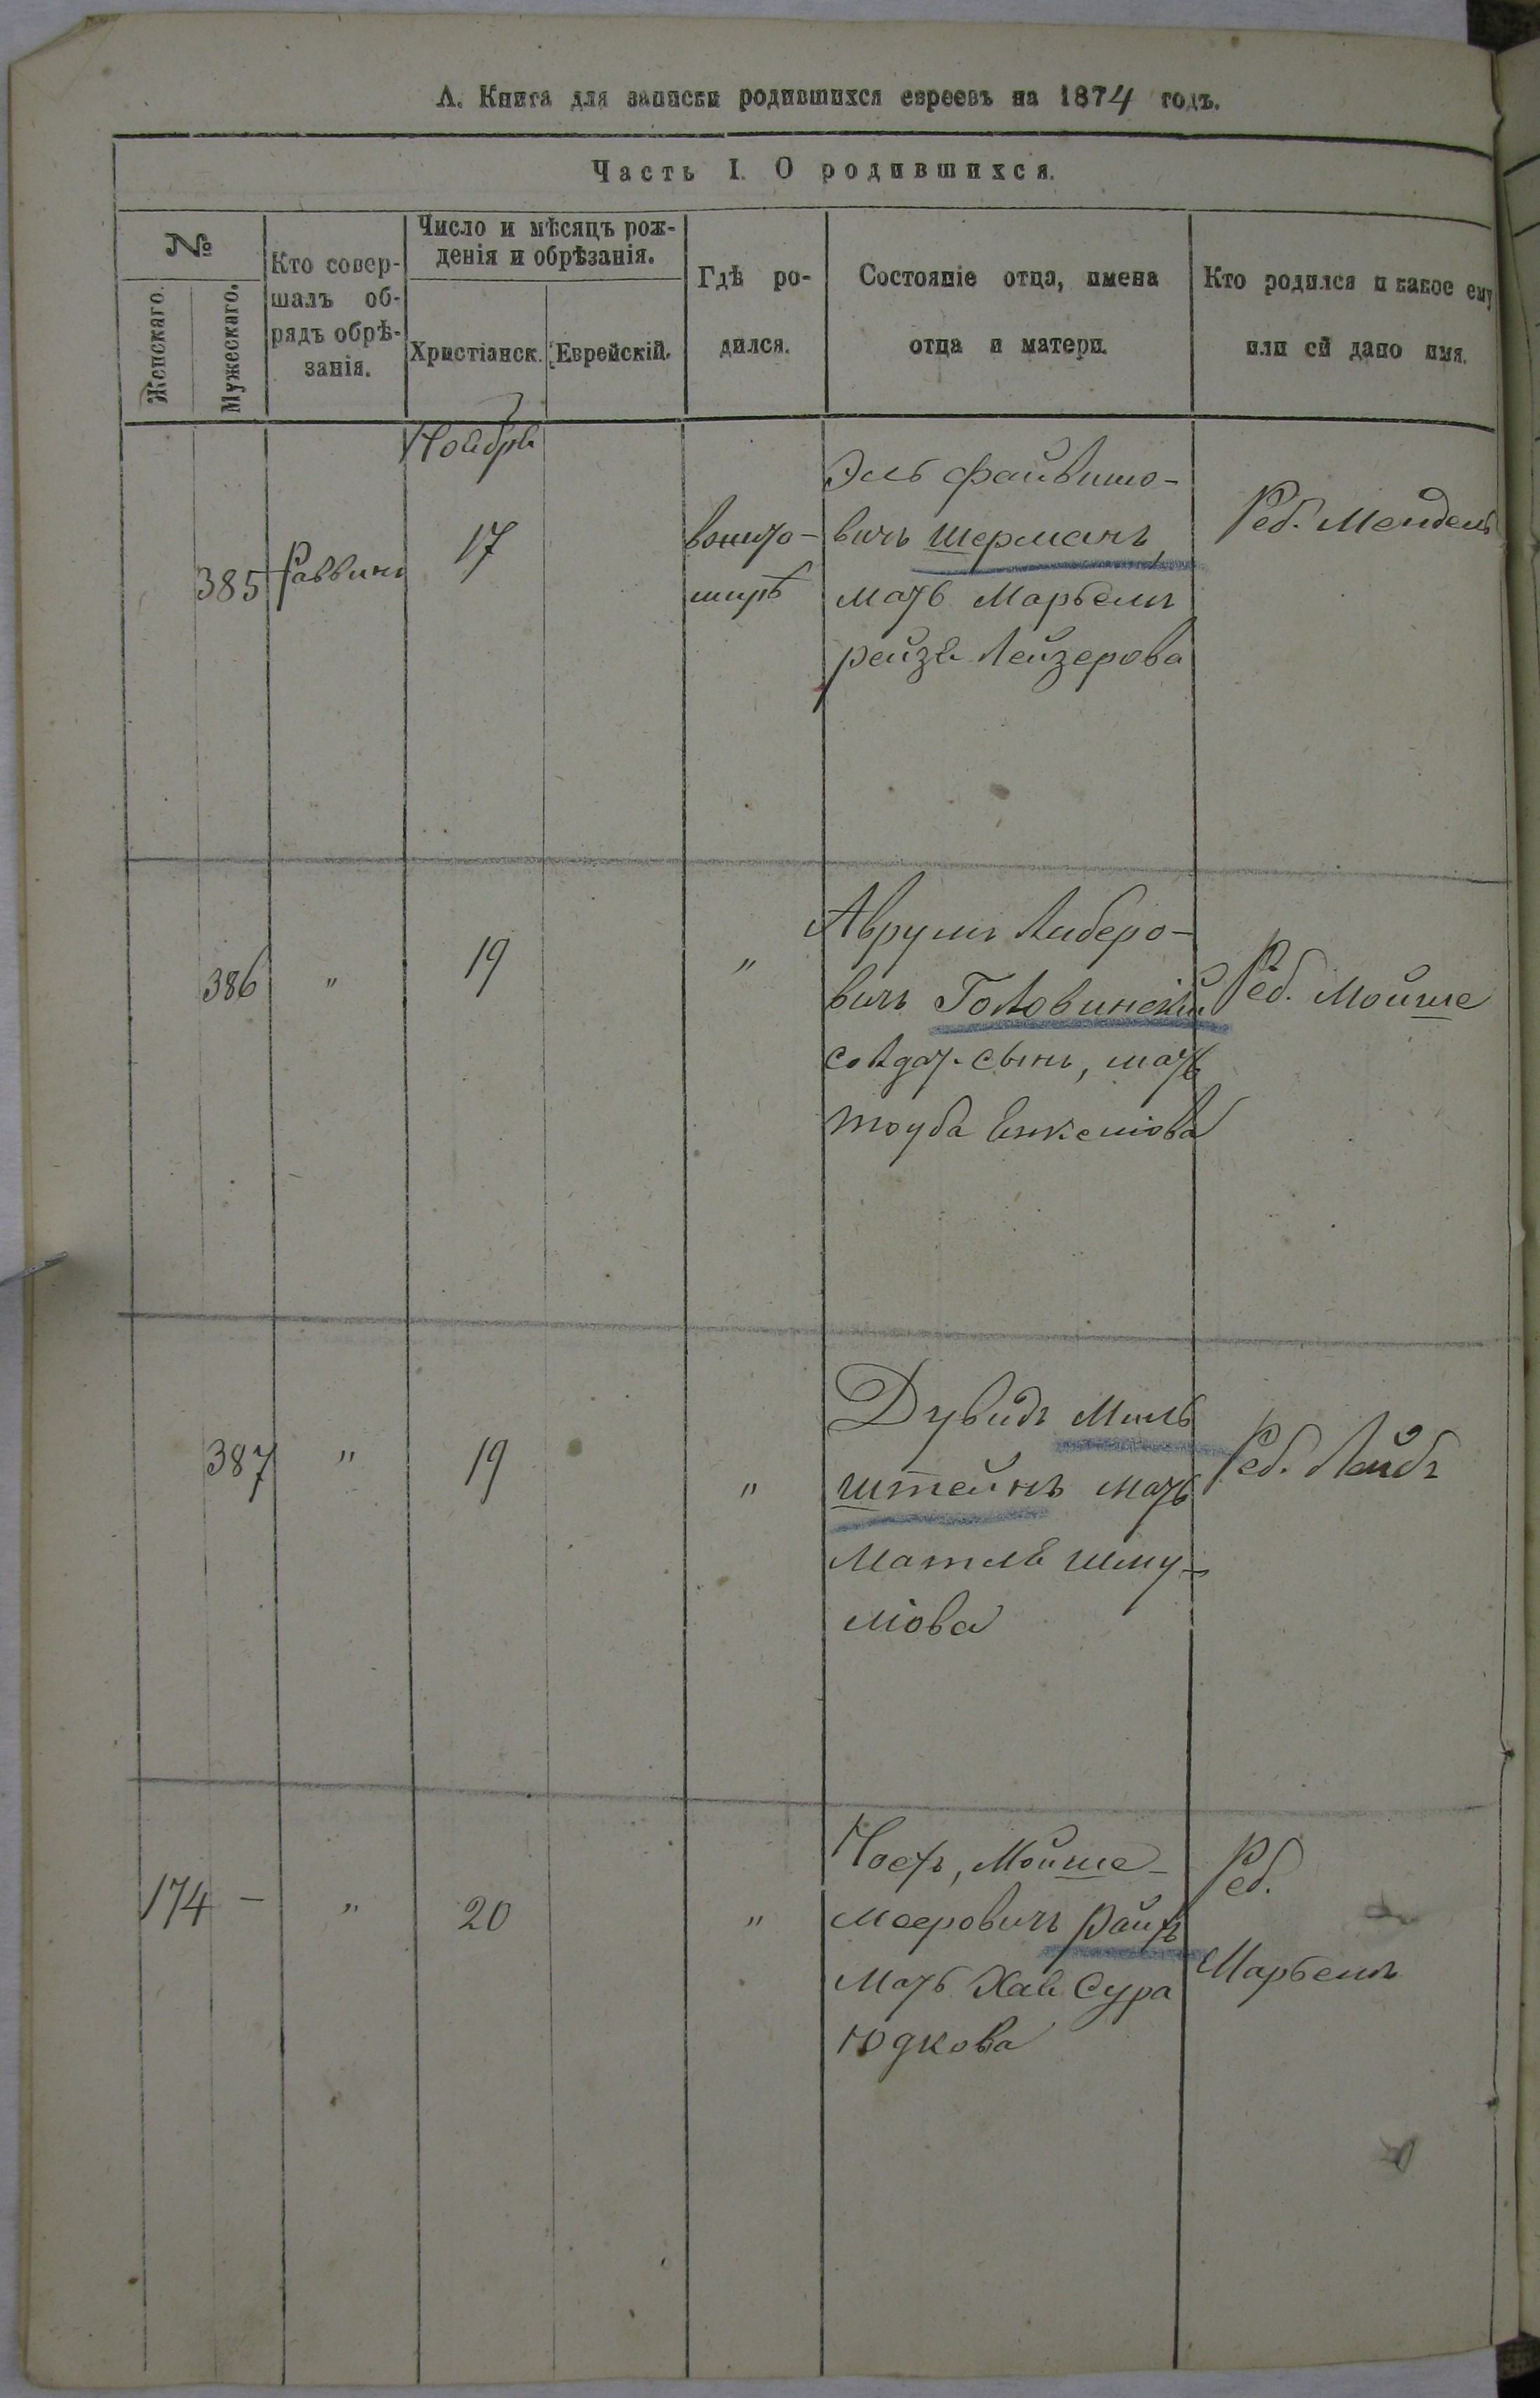 А. Книга для записки родившихся евреевъ на 1874 годъ.
Часть I. О родившихся.
№
Женскаго.
Мужескаго.
Кто совер-
шалъ об-
рядъ обрѣ-
занія.
Число и мѣсяцъ рож-
денія и обрѣзанія.
Христіанск.
Еврейскій.
Гдѣ ро-
дился.
Состояніе отца, имена
отца и матери.
Кто родился и какое ему
или ей дано имя.
Ноября
385
Раввинъ
17
Эль Файвишо-
вичъ Шерманъ,
мать Марьемъ
Рейзя Лейзерова
Реб. Мендель
386
"
19
"
Аврумъ Либеро-
вичъ Головинскій
солдат. сынъ, мать
Тоуба
Реб. Мойше
387
"
19
"
Дувидъ Миль
штейнъ мать
Матля Шму-
лiова
Реб. Лейбъ
174
–
"
20
"
Мойше-
Мееровичъ Райхъ
мать Хая Сура
Юдкова
Реб.
Марьемъ